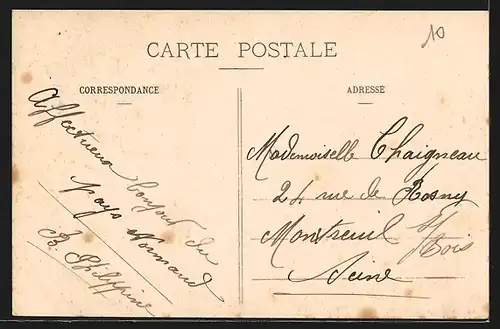 10
CARTE POSTALE
CORRESPONDANCE
Affectueux bonjour du
pays Normand
B. Philippine
ADRESSE
Mademoiselle Chaigneau
24 rue de Rosny
Montreuil s/ Bois
Seine